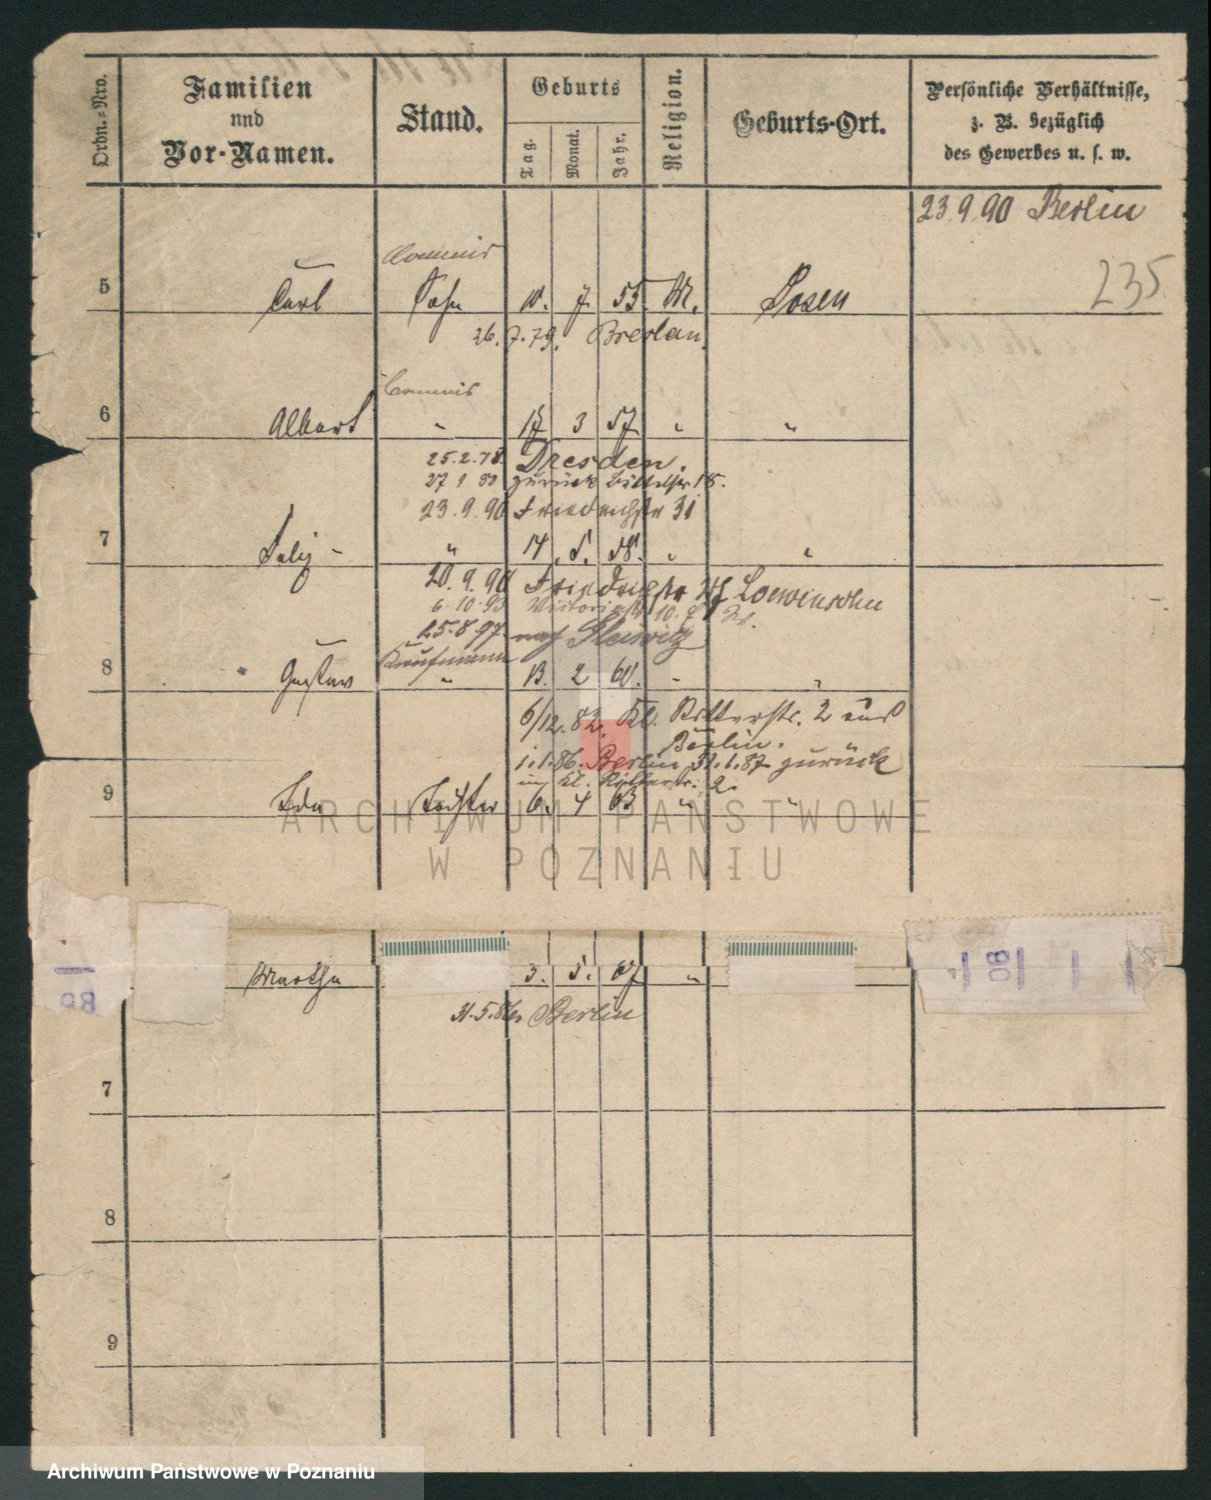 Ordn.=Nro.
Familien
und
Vor-Namen.
Stand.
Geburts
Tag.
Monat.
Jahr.
Religion.
Geburts-Ort.
Persönliche Verhältnisse,
z. B. bezüglich
des Gewerbes u. s. w.
23.9.90 Berlin
235
Commis
5 Carl Sohn 10. 7. 55. M. Posen
26.7.79. Breslau.
Commis
6 Albert " 17 3 57 " "
25.2.78. Dresden.
27 1 80 zurück
23.9.90 Friedrichstr 31
7 " 14. 5. 58. " "
20.9.90 Friedrichstr Loewinsohn
6.10.93 Victoriastr 10.
25.8.97 nach Gleiwitz
Kaufmann
8 Gustav " 13. 2 60. " "
6/12.82. Kl. Ritterstr. 2 aus
Berlin.
1.1.86. Berlin 31.1.87 zurück
Kl. Ritterstr. 2.
9 Ida Tochter 6. 4 63 " "
Martha 3. 5. 67 "
31.5.86 Berlin
7
8
9
ARCHIWUM PAŃSTWOWE
W POZNANIU
Archiwum Państwowe w Poznaniu